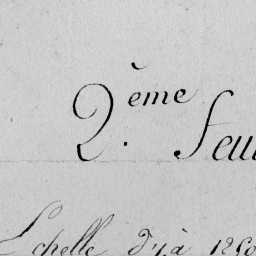 2.ème Feui
Echelle d'1 à 1250